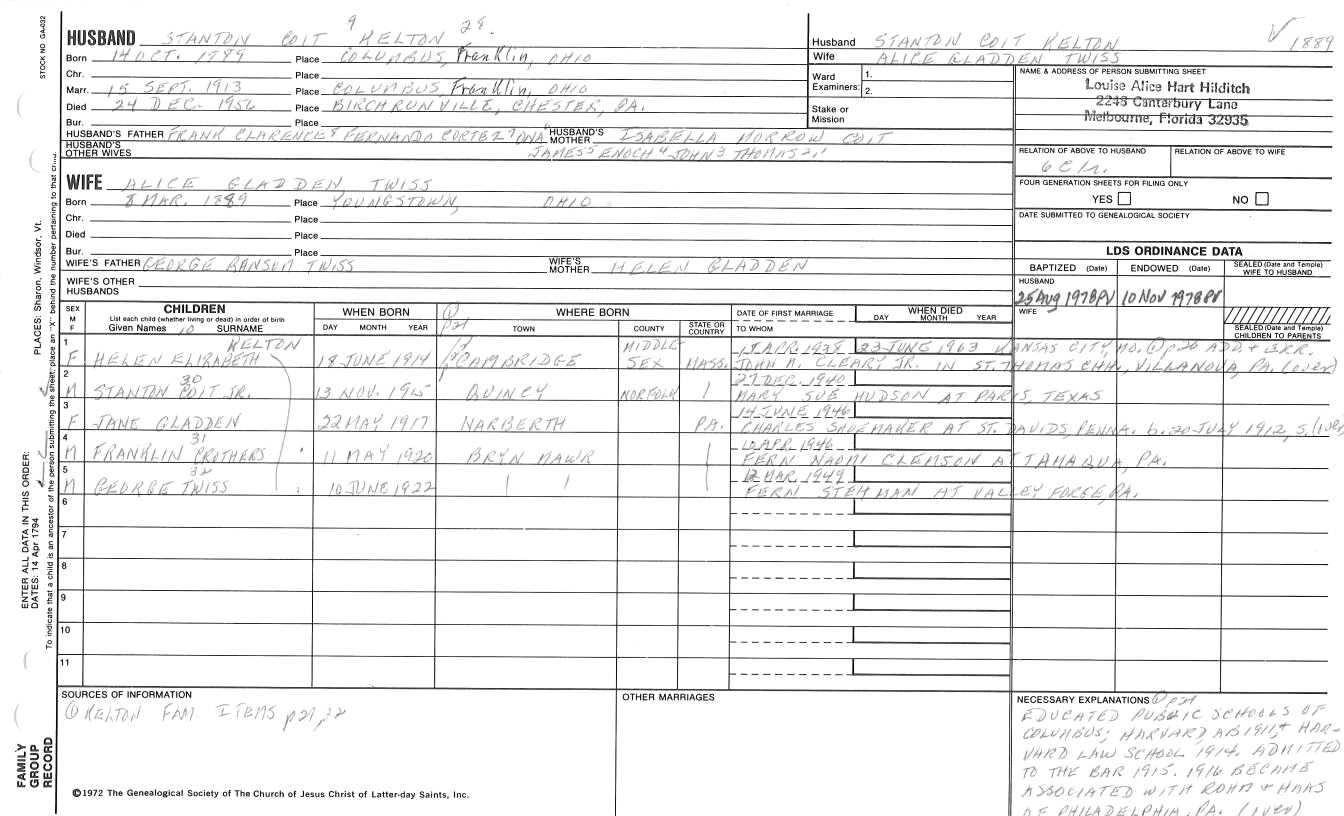 STOCK NO. GA-032
HUSBAND STANTON COIT 9 KELTON 28.
Born 14 OCT. 1889 Place COLUMBUS, Franklin, OHIO
Chr. Place
Marr. 15 SEPT. 1913 Place COLUMBUS, Franklin, OHIO
Died 24 DEC. 1956 Place BIRCHRUNVILLE, CHESTER, PA.
Bur. Place
HUSBAND'S FATHER FRANK CLARENCE 8 FERNANDO CORTEZ 7 HUSBAND'S MOTHER ISABELLA MORROW COIT
HUSBAND'S OTHER WIVES JAMES 5 ENOCH 4 JOHN 3 THOMAS 2,1
Husband STANTON COIT KELTON 1889
Wife ALICE GLADDEN TWISS
Ward Examiners: 1. 2.
Stake or Mission
NAME & ADDRESS OF PERSON SUBMITTING SHEET
Louise Alice Hart Hilditch
2248 Canterbury Lane
Melbourne, Florida 32935
RELATION OF ABOVE TO HUSBAND RELATION OF ABOVE TO WIFE
6C1r.
FOUR GENERATION SHEETS FOR FILING ONLY
YES NO
DATE SUBMITTED TO GENEALOGICAL SOCIETY
WIFE ALICE GLADDEN TWISS
Born 8 MAR. 1889 Place YOUNGSTOWN, OHIO
Chr. Place
Died Place
Bur. Place
WIFE'S FATHER GEORGE RANSOM TWISS WIFE'S MOTHER HELEN GLADDEN
WIFE'S OTHER HUSBANDS
LDS ORDINANCE DATA
BAPTIZED (Date) ENDOWED (Date) SEALED (Date and Temple) WIFE TO HUSBAND
HUSBAND
25 Aug 1978PV 10 Nov 1978PV
WIFE
SEALED (Date and Temple) CHILDREN TO PARENTS
SEX M F
CHILDREN
List each child (whether living or dead) in order of birth
Given Names 10 SURNAME
WHEN BORN
DAY MONTH YEAR
① p21
WHERE BORN
TOWN COUNTY STATE OR COUNTRY
DATE OF FIRST MARRIAGE
TO WHOM
WHEN DIED
DAY MONTH YEAR
1 KELTON MIDDLE- 15 APR. 1938 23 JUNE 1963 KANSAS CITY, MO. ① p26 ADD. & ERR.
F HELEN ELIZABETH 18 JUNE 1914 CAMBRIDGE SEX MASS. JOHN A. CLEARY JR. IN ST. THOMAS CHH., VILLANOVA, PA. (over)
2 30 27 DEC. 1940
M STANTON COIT JR. 13 NOV. 1915 QUINCY NORFOLK MARY SUE HUDSON AT PARIS, TEXAS
3 14 JUNE 1946
F JANE GLADDEN 22 MAY 1917 NARBERTH PA. CHARLES SHOEMAKER AT ST. DAVIDS, PENNA. b. 20 JULY 1912, S. (over)
4 31 10 APR. 1946
M FRANKLIN PROTHERS 11 MAY 1920 BRYN MAWR FERN NAOMI CLEMSON AT TAMAQUA, PA.
5 32 12 MAR 1949
M GEORGE TWISS 10 JUNE 1922 " " FERN STEHMAN AT VALLEY FORGE, PA.
6
7
8
9
10
11
SOURCES OF INFORMATION
① KELTON FAM ITEMS p21, 22
OTHER MARRIAGES
NECESSARY EXPLANATIONS ① p21
EDUCATED PUBLIC SCHOOLS OF
COLUMBUS; HARVARD AB 1911, & HAR-
VARD LAW SCHOOL 1914. ADMITTED
TO THE BAR 1915. 1916 BECAME
ASSOCIATED WITH ROHM & HAAS
OF PHILADELPHIA, PA. (over)
©1972 The Genealogical Society of The Church of Jesus Christ of Latter-day Saints, Inc.
FAMILY GROUP RECORD
ENTER ALL DATA IN THIS ORDER:
DATES: 14 Apr 1794 PLACES: Sharon, Windsor, Vt.
To indicate that a child is an ancestor of the person submitting the sheet, place an "X" behind the number pertaining to that child.